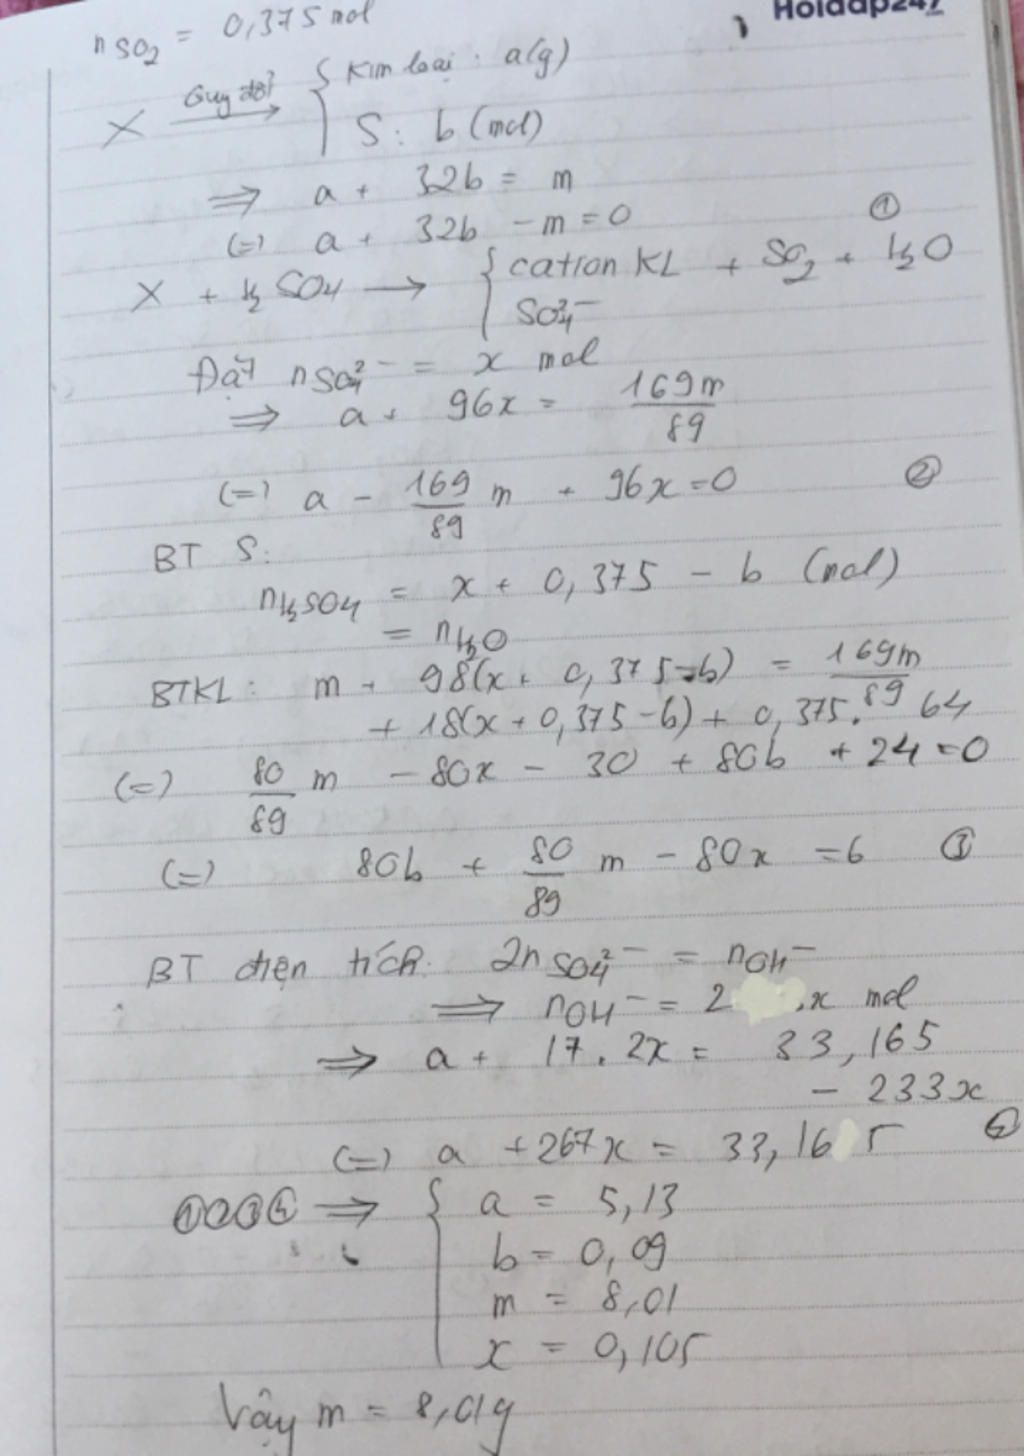 Hoidap247
nSO2 = 0,375 mol
X Quy đổi → { Kim loại : a(g)
S : b (mol)
⇒ a + 32b = m
(=) a + 32b - m = 0 ①
X + H2SO4 → { cation KL + SO2 + H2O
SO4^2-
Đặt nSO4^2- = x mol
⇒ a + 96x = 169m/89
(=) a - 169/89 m + 96x = 0 ②
BT S:
nH2SO4 = x + 0,375 - b (mol)
= nH2O
BTKL : m + 98(x + 0,375 - b) = 169m/89
+ 18(x + 0,375 - b) + 0,375 . 64
(=) 80/89 m - 80x - 30 + 80b + 24 = 0
(=) 80b + 80/89 m - 80x = 6 ③
BT điện tích: 2nSO4^2- = nOH^-
⇒ nOH^- = 2 .x mol
⇒ a + 17 . 2x = 33,165
- 233x
(=) a + 267x = 33,165 ④
①②③④ ⇒ { a = 5,13
b = 0,09
m = 8,01
x = 0,105
Vậy m = 8,01g